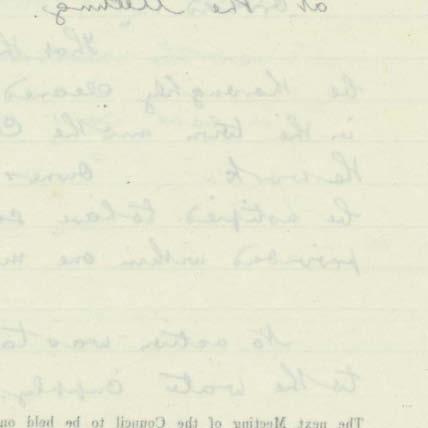 at another Meeting
That th
be thoroughly cleaned
in the town and the C
the work. Owners
be notified to have
provided within one m
No action was ta
to the water supply.
The next Meeting of the Council to be held on